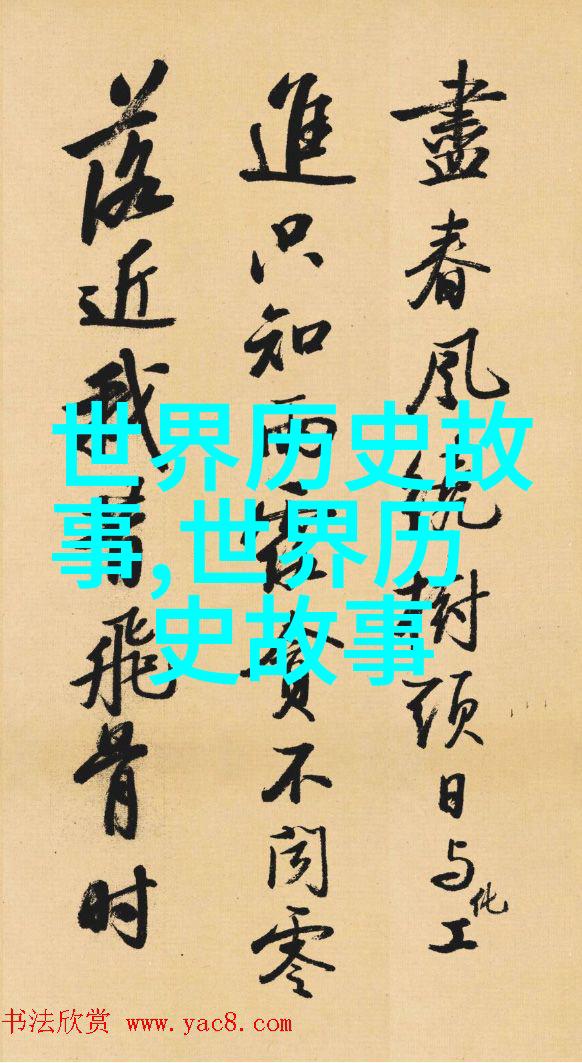 盡春風繞樹頭日与化工
進只知雨露貪不聞零
落近我昔飛骨时
世界历史故
事,世界历
史故事
书法欣赏 www.yac8.com